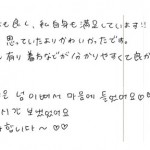 も良し、私自身も満足しています!!
思っていたよりかわいかったです。
有り着方などが分かりやすくて良か
은 넘 이뻐서 마음에 들었어요♡♡
시고 보냈었어요
합니다~ ♡♡